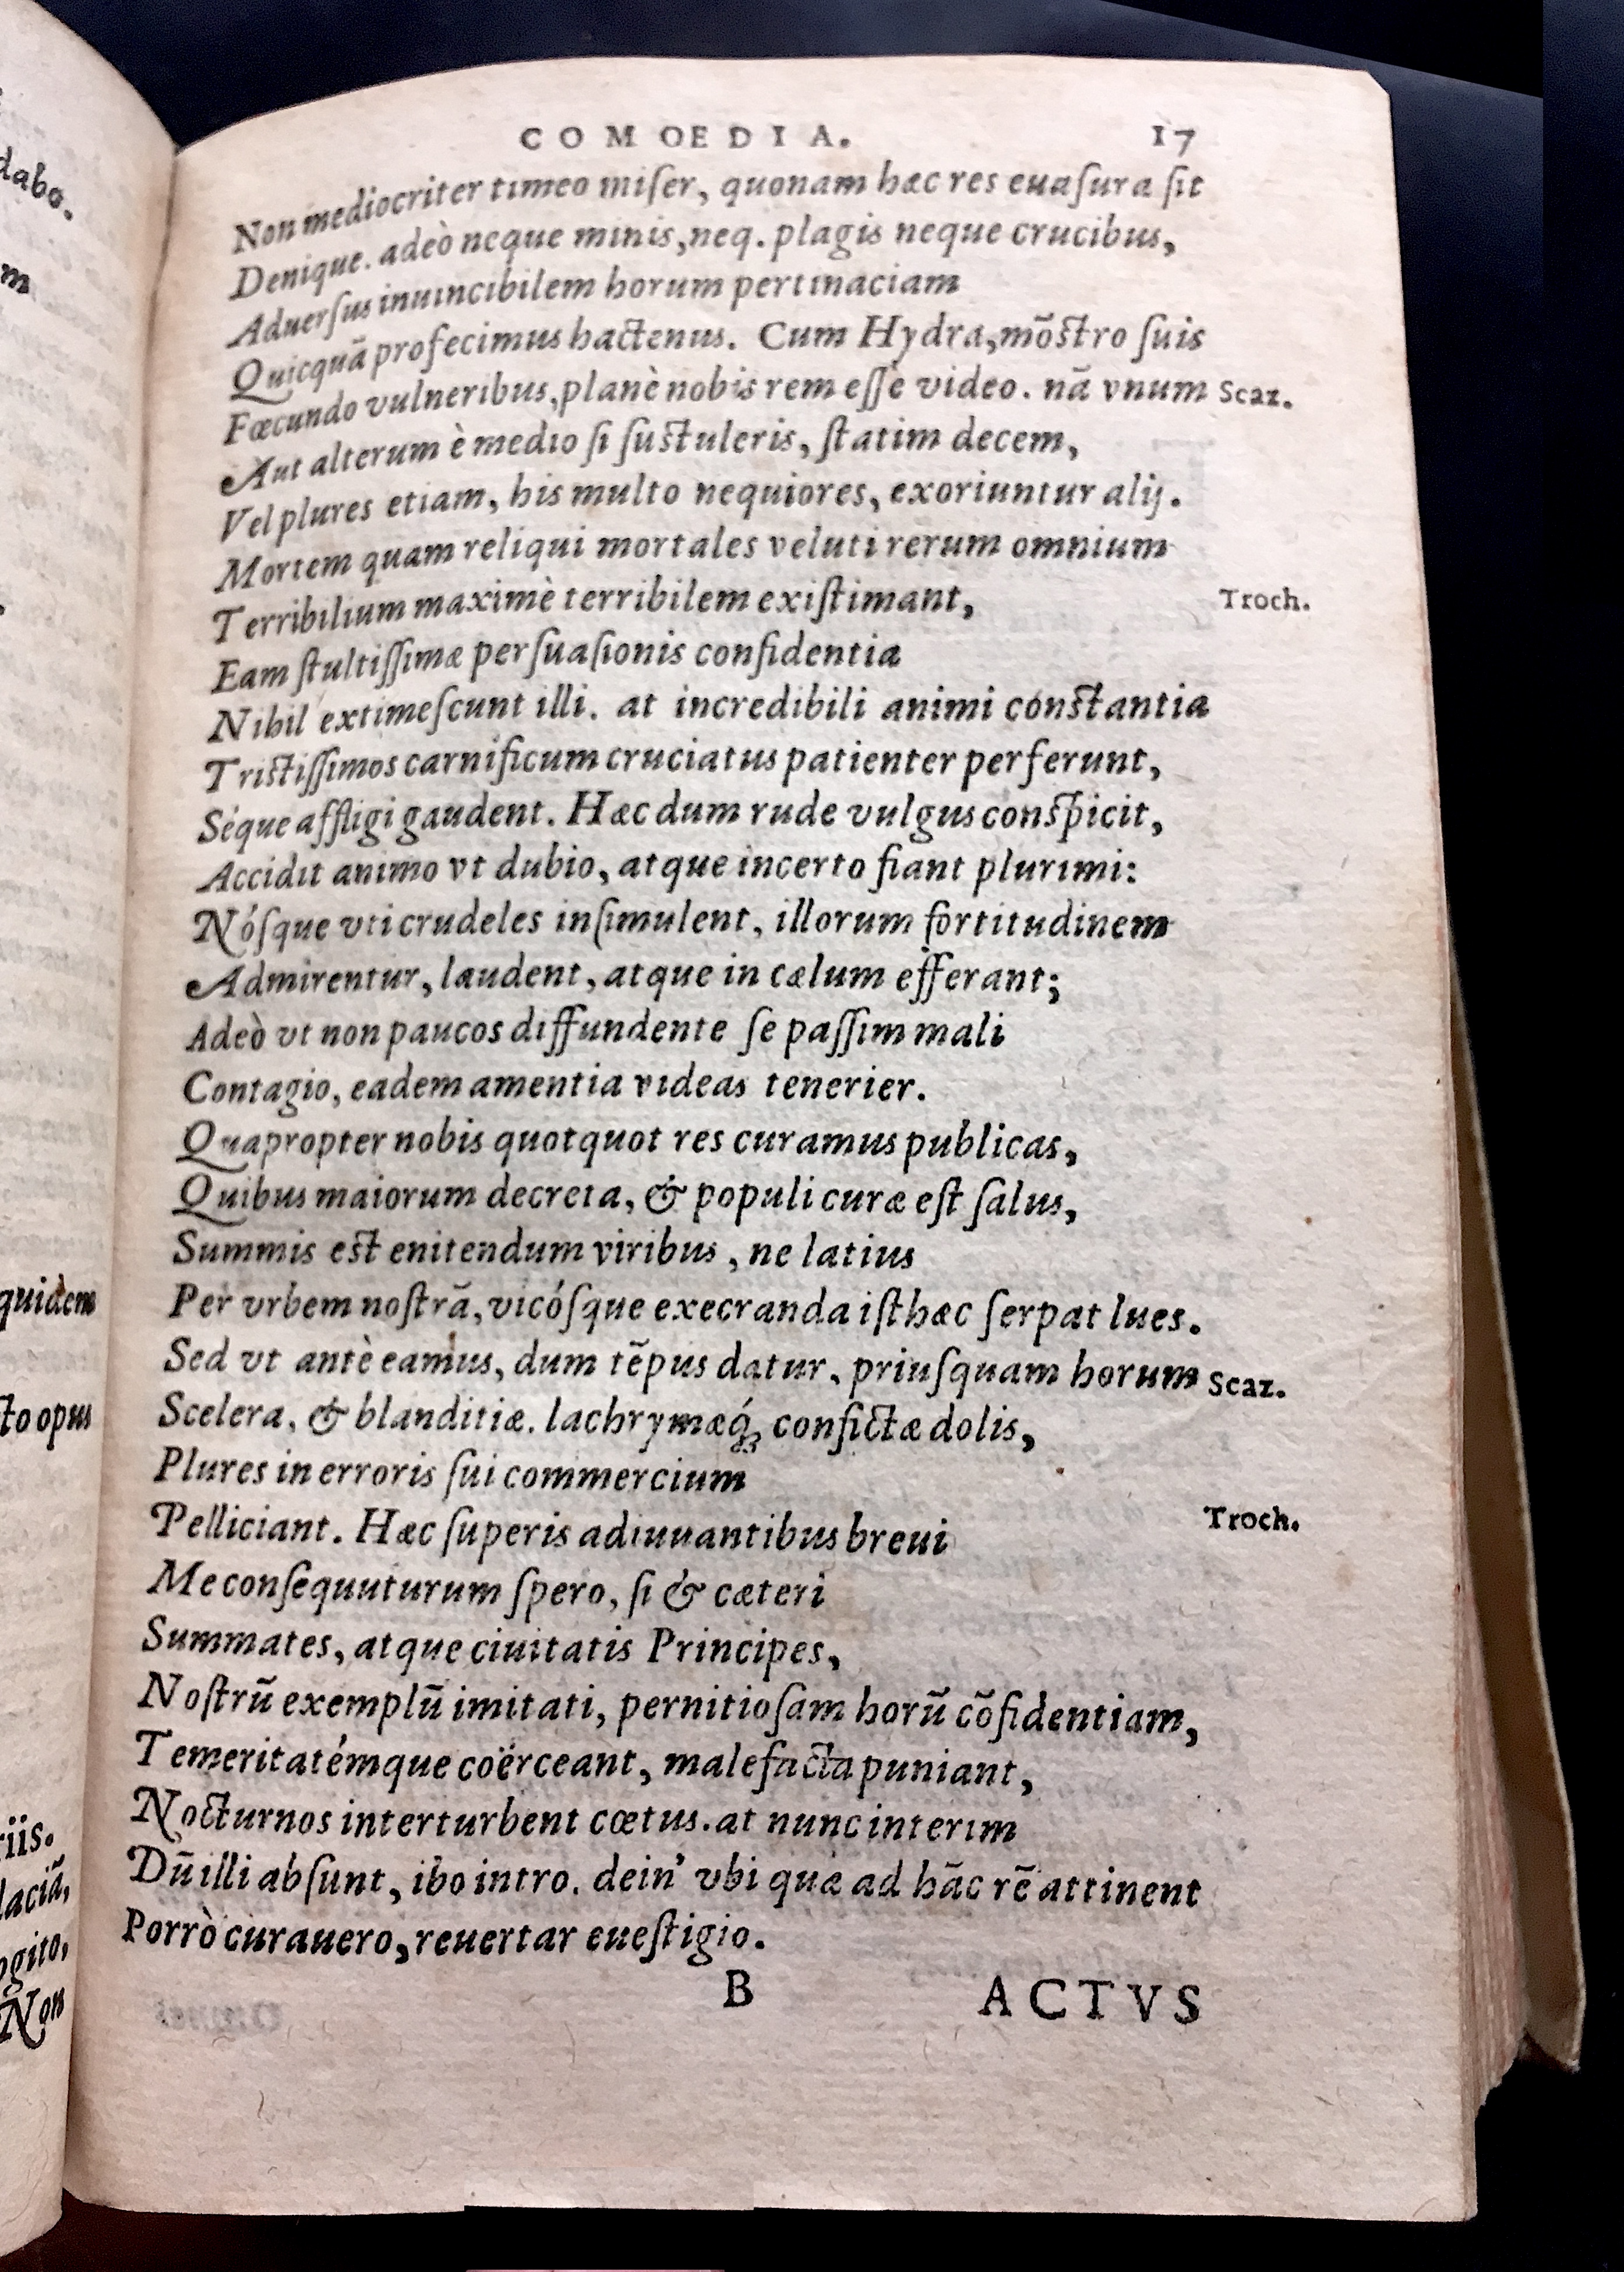 dabo.
m
quidem
to opus
riis.
laciā,
ogito,
Non
COMOEDIA. 17
Non mediocriter timeo miſer, quonam hæc res euaſura ſit
Denique. adeò neque minis, neq. plagis neque crucibus,
Aduerſus inuincibilem horum pertinaciam
Quicquā profecimus hactenus. Cum Hydra, mōſtro ſuis
Fœcundo vulneribus, planè nobis rem eſſe video. nā vnum Scaz.
Aut alterum è medio ſi ſuſtuleris, ſtatim decem,
Vel plures etiam, his multo nequiores, exoriuntur alij.
Mortem quam reliqui mortales veluti rerum omnium
Terribilium maximè terribilem exiſtimant, Troch.
Eam ſtultiſſimæ perſuaſionis confidentia
Nihil extimeſcunt illi. at incredibili animi conſtantia
Triſtiſſimos carnificum cruciatus patienter perferunt,
Séque affligi gaudent. Hæc dum rude vulgus conſpicit,
Accidit animo vt dubio, atque incerto fiant plurimi:
Nóſque vti crudeles inſimulent, illorum fortitudinem
Admirentur, laudent, atque in cælum efferant;
Adeò vt non paucos diffundente ſe paſſim mali
Contagio, eadem amentia videas tenerier.
Quapropter nobis quotquot res curamus publicas,
Quibus maiorum decreta, & populi curæ eſt ſalus,
Summis eſt enitendum viribus, ne latius
Per vrbem noſtrā, vicóſque execranda iſthæc ſerpat lues.
Sed vt antè eamus, dum tēpus datur, priuſquam horum Scaz.
Scelera, & blanditiæ. lachrymæq́; confictæ dolis,
Plures in erroris ſui commercium
Pelliciant. Hæc ſuperis adiuuantibus breui Troch.
Me conſequuturum ſpero, ſi & cæteri
Summates, atque ciuitatis Principes,
Noſtrū exemplū imitati, pernitioſam horū cōfidentiam,
Temeritatémque coërceant, malefacta puniant,
Nocturnos interturbent cœtus. at nunc interim
Dū illi abſunt, ibo intro. dein' vbi quæ ad hāc rē attinent
Porrò curauero, reuertar eueſtigio.
B ACTVS